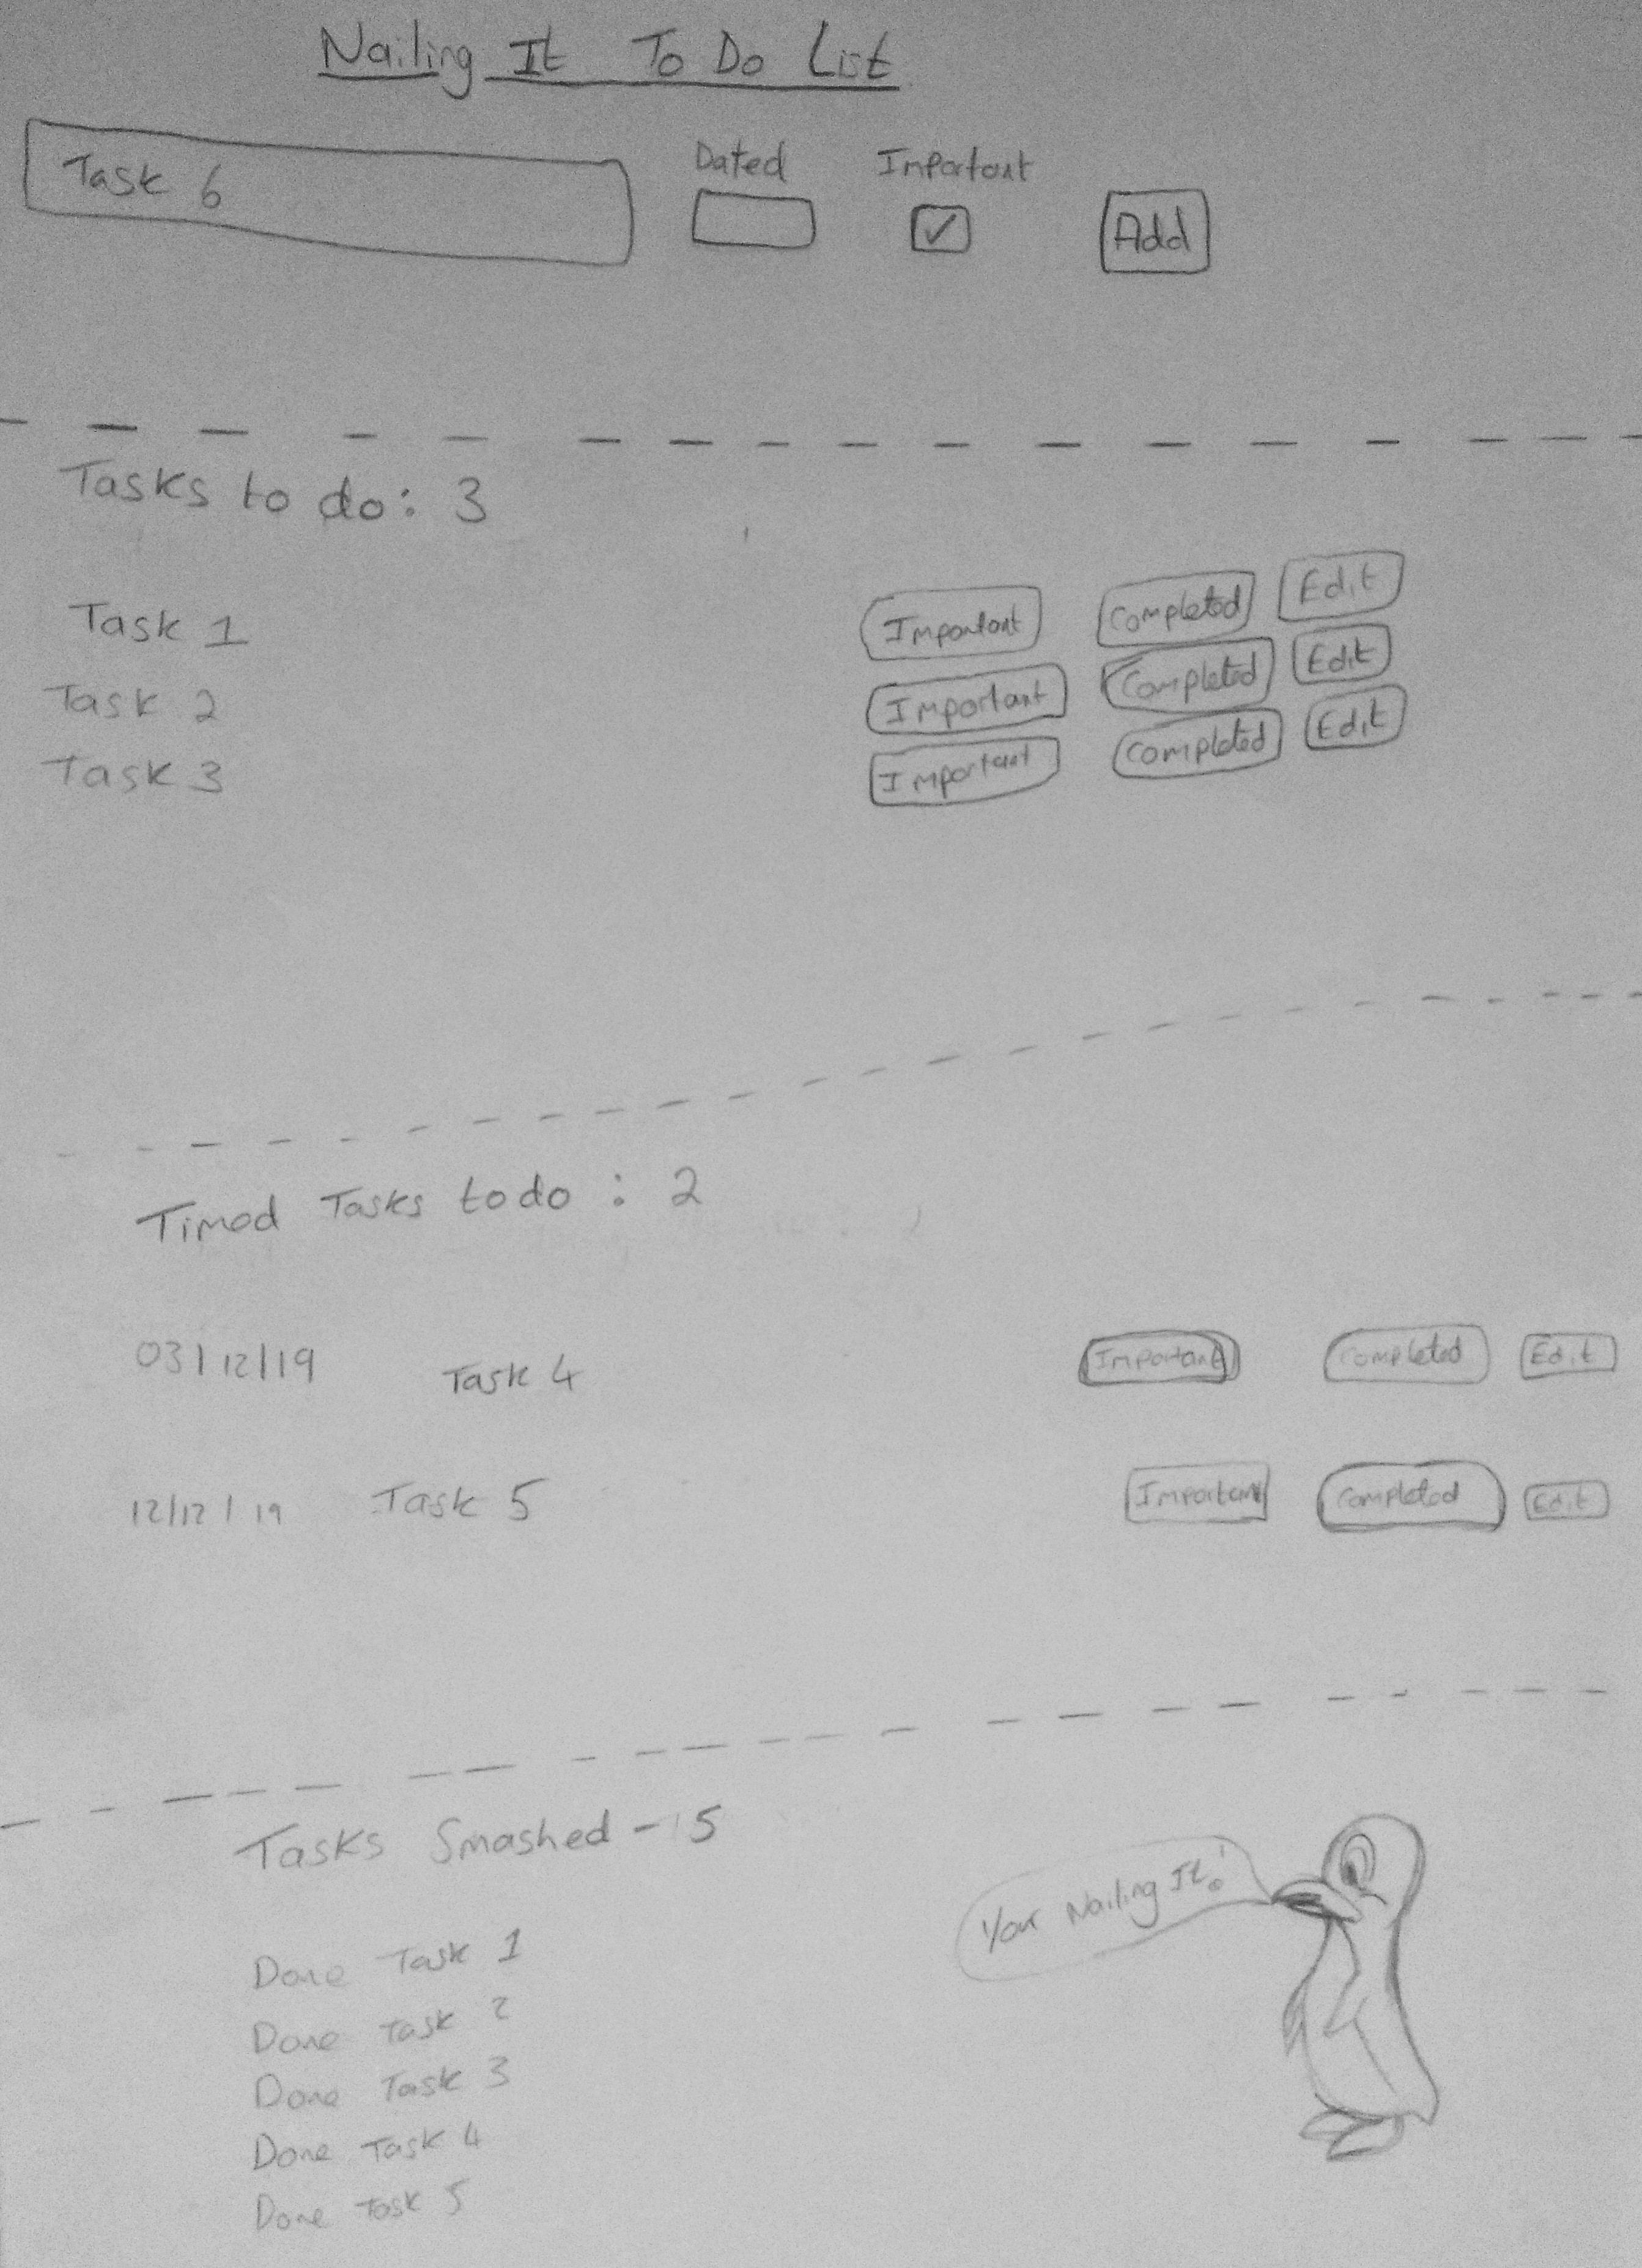 Nailing It To Do List
Task 6
Dated
Important
Add
Tasks to do: 3
Task 1 Important Completed Edit
Task 2 Important Completed Edit
Task 3 Important Completed Edit
Timed Tasks to do : 2
03/12/19 Task 4 Important Completed Edit
12/12/19 Task 5 Important Completed Edit
Tasks Smashed - 5
Your Nailing It!
Done Task 1
Done Task 2
Done Task 3
Done Task 4
Done Task 5